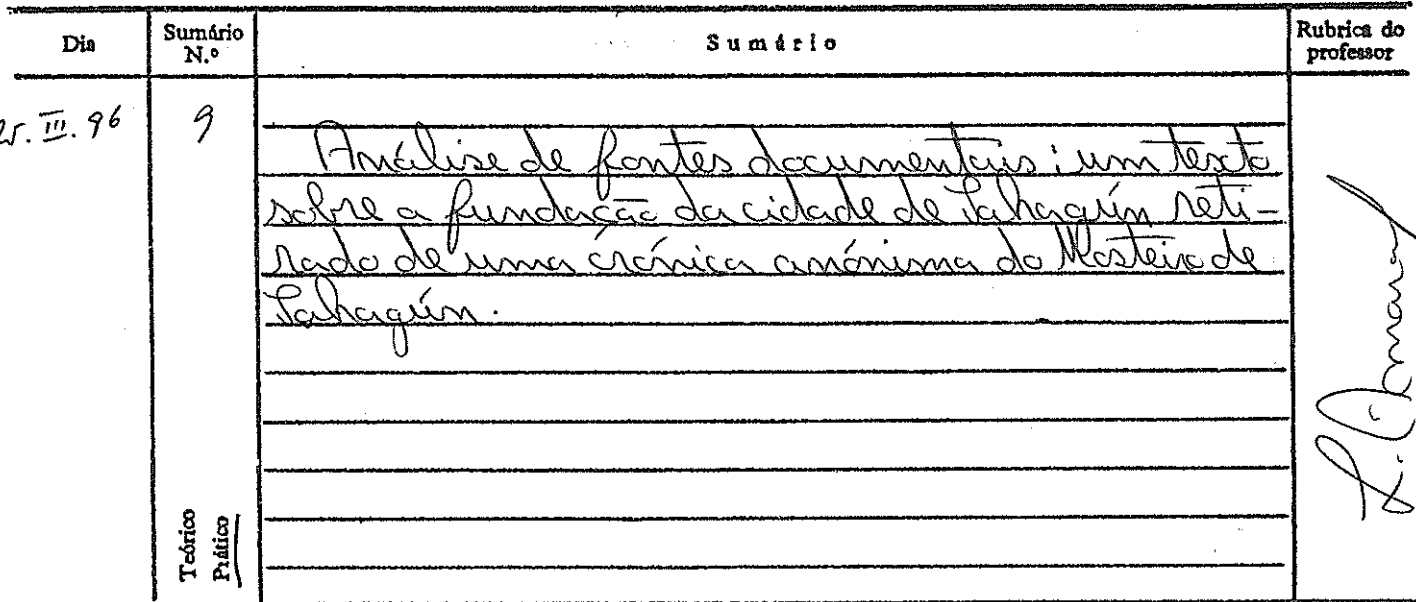 Dia
Sumário N.º
Sumário
Rubrica do professor
25. III. 96
9
Análise de fontes documentais: um texto
sobre a fundação da cidade de Sahagún reti-
rado de uma crónica anónima do Mosteiro de
Sahagún.
Teórico
Prático